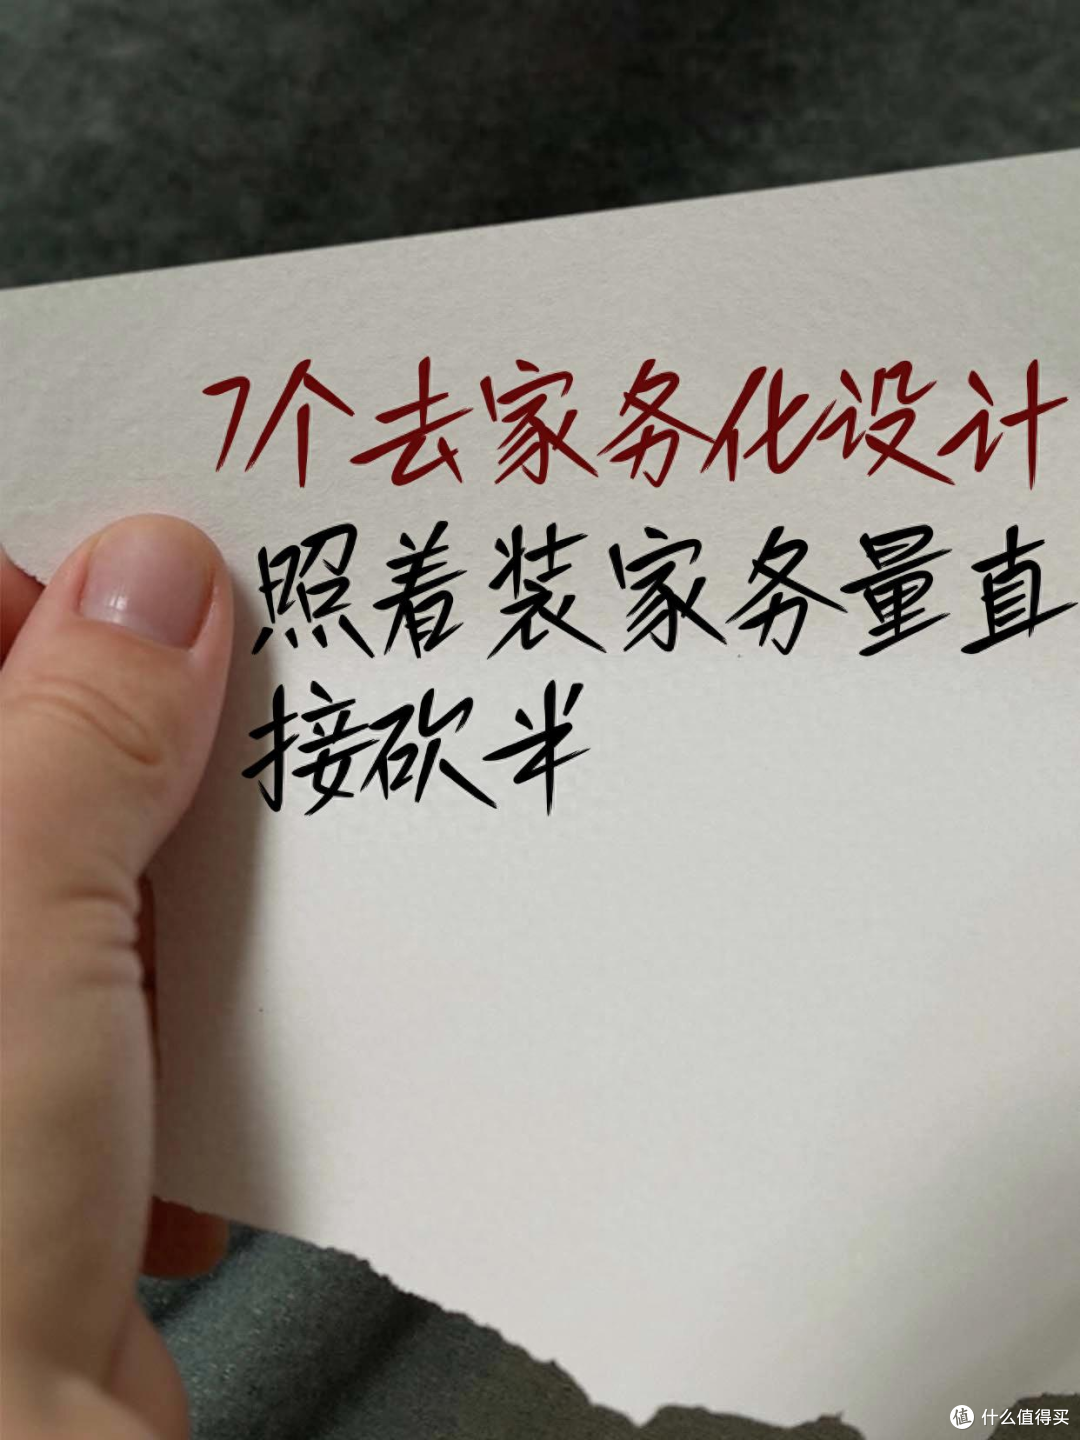 7个去家务化设计
照着装家务量直
接砍半
值 什么值得买